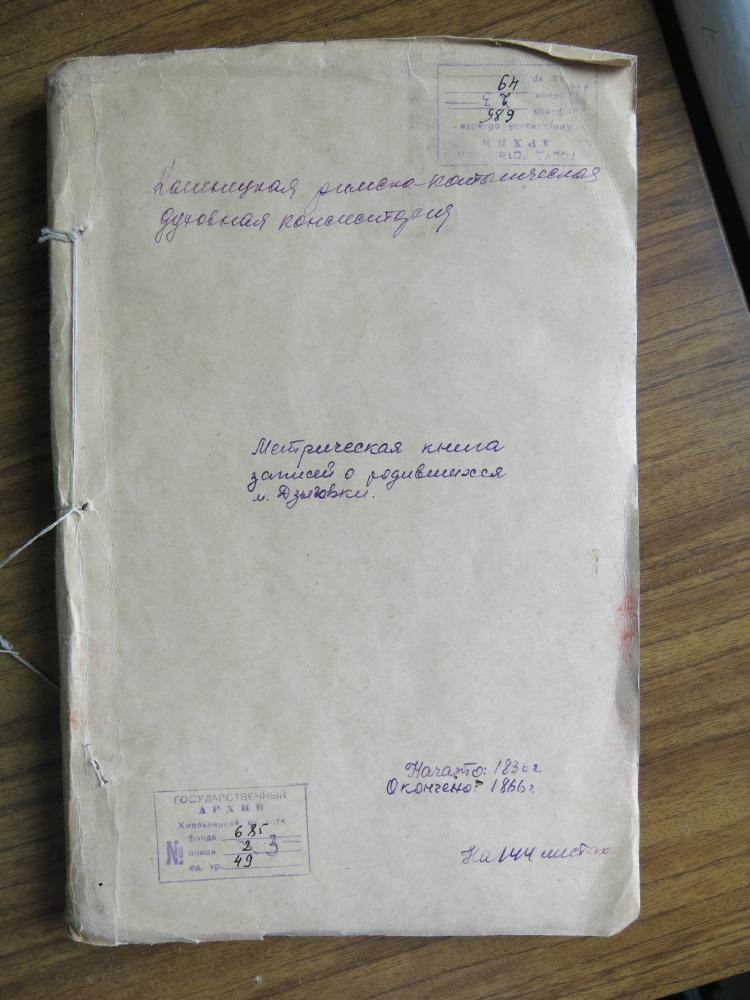 ГОСУДАРСТВЕННЫЙ
АРХИВ
Хмельницкой области
фонда 685
описи 2 3
ед. хр. 49
Каменецкая римско-католическая
духовная консистория
Метрическая книга
записей о родившихся
м. Дзыговки.
Начато: 1836г.
Окончено: 1866г.
На 144 листах
ГОСУДАРСТВЕННЫЙ
АРХИВ
Хмельницкой области
фонда 685
№ описи 2 3
ед. хр. 49